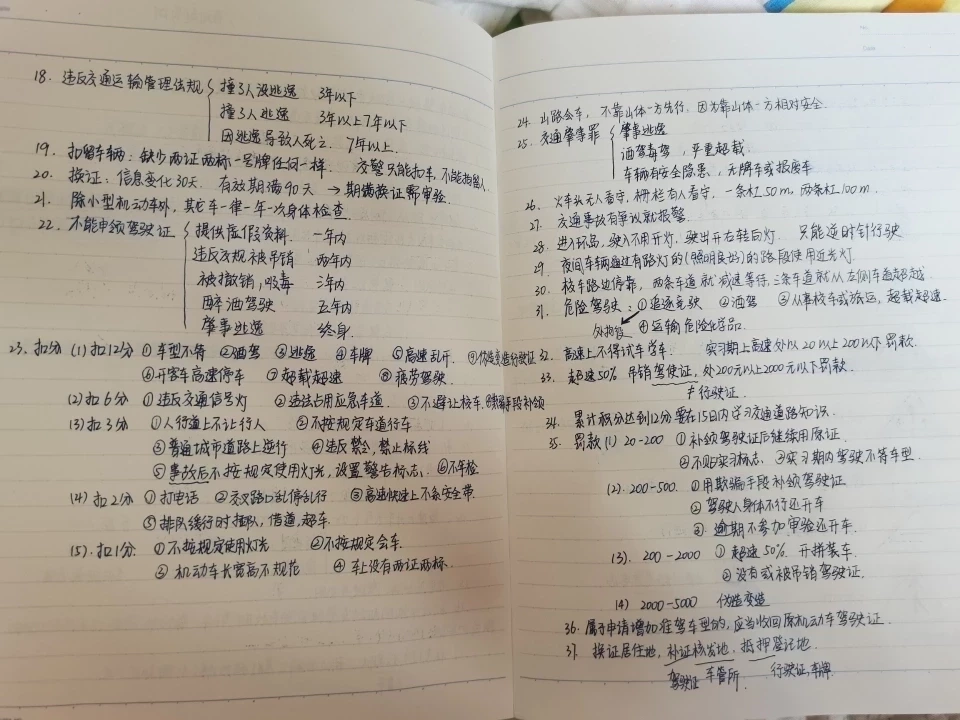 18. 违反交通运输管理法规 { 撞了人没逃逸 3年以下
撞了人逃逸 3年以上7年以下
因逃逸导致人死亡. 7年以上.
19. 扣留车辆: 缺少两证两标一号牌任何一样. 交警只能扣车,不能拘留人.
20. 换证: 信息变化30天. 有效期满90天 → 期满换证需审验.
21. 除小型机动车外, 其它车一律一年一次身体检查.
22. 不能申领驾驶证 { 提供虚假资料. 一年内
违反交规被吊销 两年内
被撤销,吸毒 三年内
醉酒驾驶 五年内
肇事逃逸 终身.
23. 扣分 (1) 扣12分 ①车型不符 ②酒驾 ③逃逸 ④车牌 ⑤高速乱开. ⑨伪造变造行驶证
⑥开客车高速停车 ⑦超载超速 ⑧疲劳驾驶.
(2) 扣6分 ①违反交通信号灯 ②违法占用应急车道. ③不避让校车. 手段补领
(3) 扣3分 ①人行道上不让行人 ②不按规定车道行车
③普通城市道路上逆行 ④违反禁令,禁止标线
⑤事故后不按规定使用灯光,设置警告标志. ⑥不年检
(4) 扣2分 ①打电话 ②交叉路口乱停乱行 ③高速快速上不系安全带.
⑤排队缓行时插队,借道,超车.
(5). 扣1分: ①不按规定使用灯光 ②不按规定会车.
③ 机动车长宽高不规范 ④ 车上没有两证两标.
24. 山路会车, 不靠山体一方先行, 因为靠山体一方相对安全.
25. 交通肇事罪 { 肇事逃逸
酒驾毒驾, 严重超载.
车辆有安全隐患, 无牌车或报废车
26. 火车头无人看守, 栅栏有人看守, 一条杠50m, 两条杠100m.
27. 交通事故有争议就报警.
28. 进入环岛, 驶入不用开灯. 驶出开右转向灯. 只能逆时针行驶
29. 夜间车辆通过有路灯的(照明良好)的路段使用近光灯.
30. 校车路边停靠, 两条车道就减速等待, 三条车道就从左侧车道超越.
31. 危险驾驶: ①追逐竞驶 ②酒驾 ③从事校车或旅运, 超载超速.
处拘役 ④运输危险化学品.
32. 高速上不得试车学车. 实习期上高速处以20以上200以下罚款.
33. 超速50% 吊销驾驶证, 处200元以上2000元以下罚款.
≠行驶证.
34. 累计积分达到12分要在15日内学习交通道路知识.
35. 罚款 (1) 20-200 ①补领驾驶证后继续用原证.
②不贴实习标志. ③实习期内驾驶不符车型.
(2). 200-500. ①用欺骗手段补领驾驶证
② 驾驶人身体不行还开车
③. 逾期不参加审验还开车.
(3). 200-2000 ① 超速50%. 开拼装车.
②没有或被吊销驾驶证.
(4) 2000-5000 伪造变造
36. 属于申请增加准驾车型的, 应当收回原机动车驾驶证.
37. 换证居住地, 补证核发地. 抵押登记地.
驾驶证 车管所. 行驶证,车牌